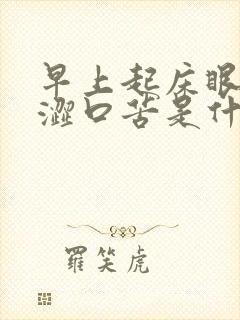 早上起床眼
澀口苦是什
羅笑虎